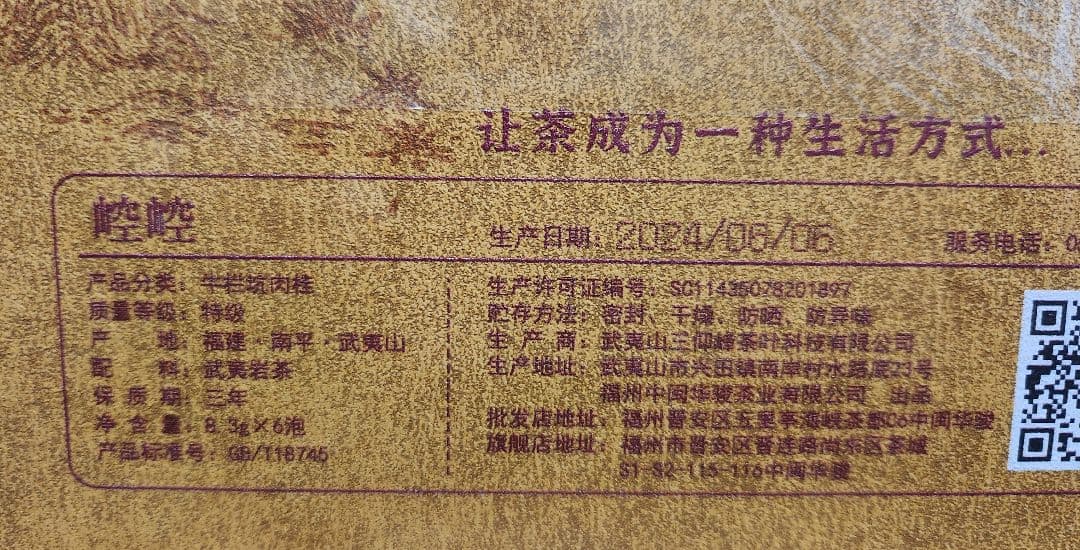 让茶成为一种生活方式...
崆崆
生产日期: 2024/06/06
服务电话: 0
产品分类: 牛栏坑肉桂
质量等级: 特级
产 地: 福建·南平·武夷山
配 料: 武夷岩茶
保 质 期: 三年
净 含 量: 8.3g×6泡
产品标准号: GB/T18745
生产许可证编号: SC11435078201897
贮存方法: 密封、干燥、防晒、防异味
生 产 商: 武夷山三仰峰茶叶科技有限公司
生产地址: 武夷山市兴田镇南岸村水路底23号
福州中闽华骏茶业有限公司 出品
批发店地址: 福州晋安区五里亭海峡茶都C6中闽华骏
旗舰店地址: 福州市晋安区晋连路尚东区茶城
S1-S2-115-116中闽华骏